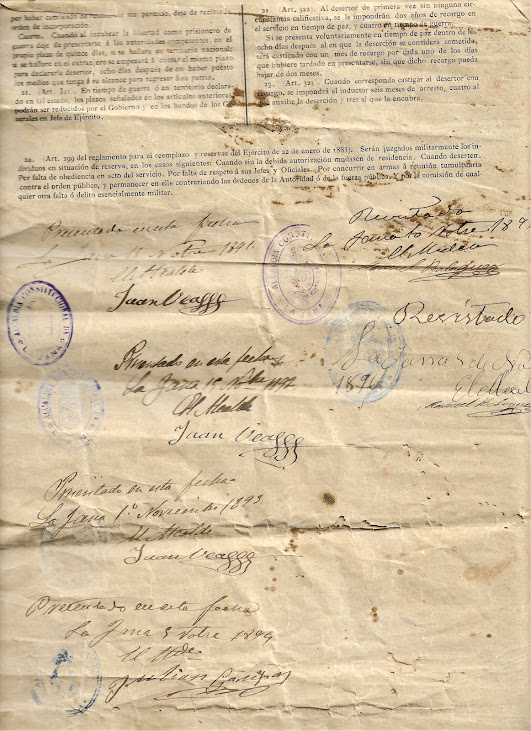 por haber cambiado de sin su permiso, deje de recibirla
orden de incorporación
Cuarto. Cuando al recobrar la libertad como prisionero de
guerra deje de presentarse á las autoridades competentes, en el
propio plazo de quince días, si se hallare en territorio nacional;
si se hallare en el extranjero se empezará á contar el mismo plazo
para declararle desertor, ocho días después de no haber puesto
los medios que tenga á su alcance para regresar á su patria.
21. (Art. 321). En tiempo de guerra ó en territorio declarado
en tal estado, los plazos señalados en los artículos anteriores
podrán ser reducidos por el Gobierno y en los bandos de los Generales
en Jefe de Ejército.
22. (Art. 322). Al desertor de primera vez sin ninguna circunstancia
calificativa, se le impondrán dos años de recargo en
el servicio en tiempo de paz, y cuatro en tiempo de guerra.
Si se presenta voluntariamente en tiempo de paz dentro de los
ocho días después al en que la deserción se considere cometida,
será castigado con un mes de recargo por cada uno de los días
que hubiere tardado en presentarse, sin que dicho recargo pueda
bajar de dos meses.
23. (Art. 323). Cuando corresponda castigar al desertor con
recargo, se impondrá al inductor seis meses de arresto, cuatro al
que auxilie la deserción y tres al que la encubra.
24. (Art. 299 del reglamento para el reemplazo y reservas del Ejército de 22 de enero de 1883). Serán juzgados militarmente los individuos
en situación de reserva, en los casos siguientes: Cuando sin la debida autorización mudasen de residencia. Cuando deserten.
Por falta de obediencia en acto del servicio. Por falta de respeto á sus Jefes y Oficiales. Por concurrir en armas á reunión tumultuaria
contra el orden público, y permanecer en ella contrariando las órdenes de la Autoridad ó de la fuerza pública. Y por la comisión de cualquier
otra falta ó delito esencialmente militar.
Presentado en esta fecha
La Jana Nbre 1891
El Alcalde
Juan
Revistado
La Jana Nbre
El Alcalde
Manuel
ALCALDIA CONSTITUCIONAL DE LA JANA
Presentado en esta fecha
La Jana 15 Nbre
El Alcalde
Juan
Revistado
La Jana 5 de
1896
El Alcal
Manuel
Presentado en esta fecha
La Jana 1º Noviembre 1893
El Alcalde
Juan
Presentado en esta fecha
La Jana 5 Nbre 1894
El Alde
Julian